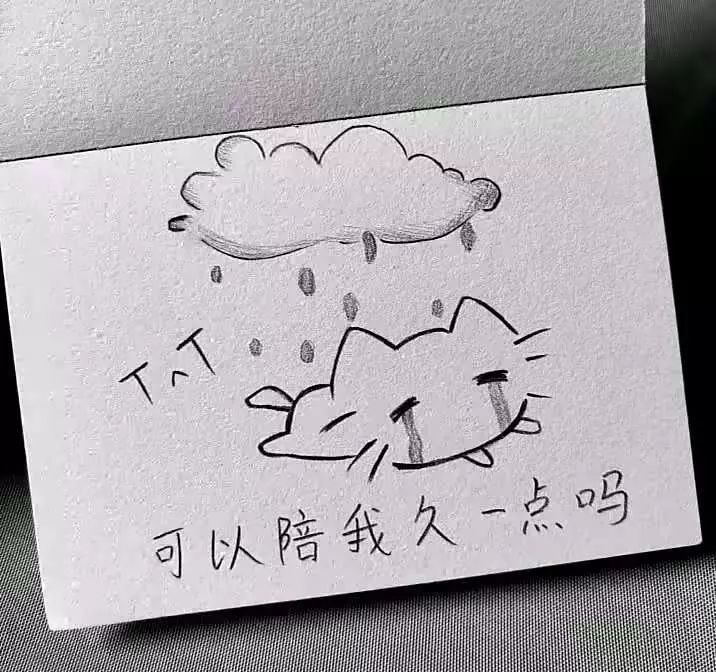 T^T
可以陪我久一点吗